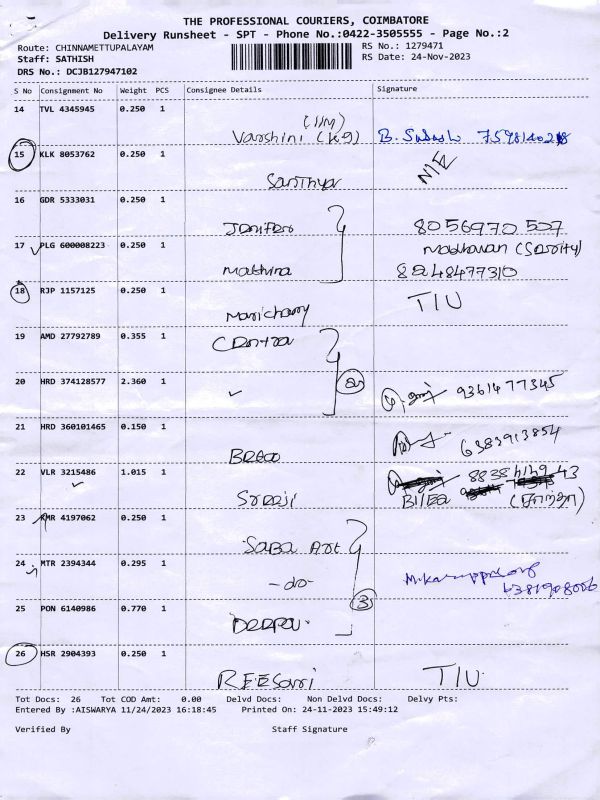 THE PROFESSIONAL COURIERS, COIMBATORE
Delivery Runsheet - SPT - Phone No.:0422-3505555 - Page No.:2
Route: CHINNAMETTUPALAYAM
Staff: SATHISH
DRS No.: DCJB127947102
RS No.: 1279471
RS Date: 24-Nov-2023
S No Consignment No Weight PCS Consignee Details Signature
14 TVL 4345945 0.250 1
(IIM)
Varshini (K9)
15 KLK 8053762 0.250 1
Santhya NIE
16 GDR 5333031 0.250 1
Jenifer 8056970507
17 PLG 600008223 0.250 1
Madhavan
Mathina 8248477310
18 RJP 1157125 0.250 1
TIU
19 AMD 27792789 0.355 1
20 HRD 374128577 2.360 1
2
9361477345
21 HRD 360101465 0.150 1
6383913854
22 VLR 3215486 1.015 1
Sreeji
23 KMR 4197062 0.250 1
Saba Art
24 MTR 2394344 0.295 1
-do-
3
25 PON 6140986 0.770 1
Deepa
26 HSR 2904393 0.250 1
TIU
Tot Docs: 26 Tot COD Amt: 0.00 Delvd Docs: Non Delvd Docs: Delvy Pts:
Entered By :AISWARYA 11/24/2023 16:18:45 Printed On: 24-11-2023 15:49:12
Verified By Staff Signature